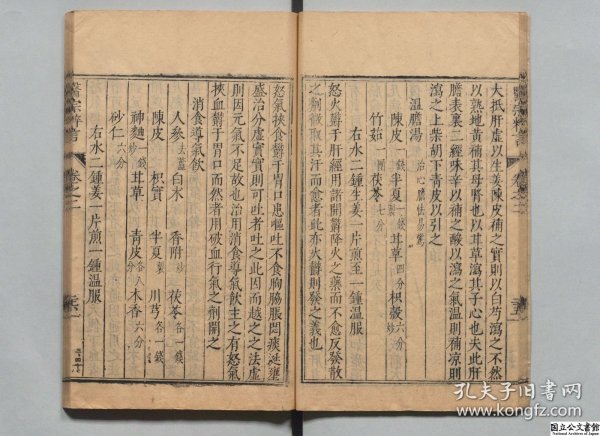 大抵肝虚以生姜陳皮補之實則以白芍瀉之不然
以熟地黄補其母腎也以甘草瀉其子心也夫此肝
膽表裏二經味辛以補之酸以瀉之氣温則補凉則
瀉之上柴胡下青皮以引之
温膽湯 治心膽怯易驚
陳皮一錢 半夏一錢 甘草四分 枳殼炒
竹茹一團 茯苓七分
右水二鍾生姜一片煎至一鍾温服
怒火鬱于肝經用諸開鬱降火之藥而不愈反發散
之劑微取其汗而愈者此亦火鬱則發之義也
醫宗粹言 卷之二
怒氣挾食鬱于胃口患嘔吐不食胸膓脹悶痰涎壅
盛治分虚實實則可吐者吐之此因而越之之法虚
則因元氣不足故也治用消食導氣飲主之有怒氣
挾血鬱于胃口而然者用破血行氣之劑開之
消食導氣飲
人參去蘆 白术 香附炒 茯苓各一錢
陳皮 枳實 半夏製 川芎各一錢
神麯一錢 甘草 青皮各八分 木香六分
砂仁六分
右水二鍾姜一片煎一鍾温服
醫宗粹言 卷之二
孔夫子旧书网
www.kongfz.com
国立公文書館
National Archives of Japan